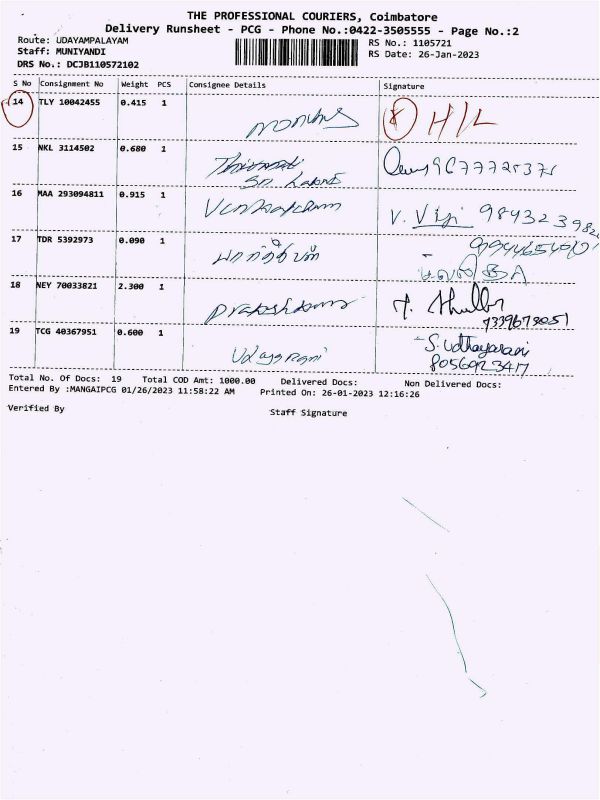 THE PROFESSIONAL COURIERS, Coimbatore
Delivery Runsheet - PCG - Phone No.:0422-3505555 - Page No.:2
Route: UDAYAMPALAYAM
Staff: MUNIYANDI
DRS No.: DCJB110572102
RS No.: 1105721
RS Date: 26-Jan-2023
S No Consignment No Weight PCS Consignee Details Signature
14 TLY 10042455 0.415 1 H/L
15 NKL 3114502 0.680 1
16 MAA 293094811 0.915 1 V. Viji
17 TDR 5392973 0.090 1
18 NEY 70033821 2.300 1
19 TCG 40367951 0.600 1 Udaya Rani S. Udhayarani
8056923417
Total No. Of Docs: 19 Total COD Amt: 1000.00 Delivered Docs: Non Delivered Docs:
Entered By :MANGAIPCG 01/26/2023 11:58:22 AM Printed On: 26-01-2023 12:16:26
Verified By Staff Signature